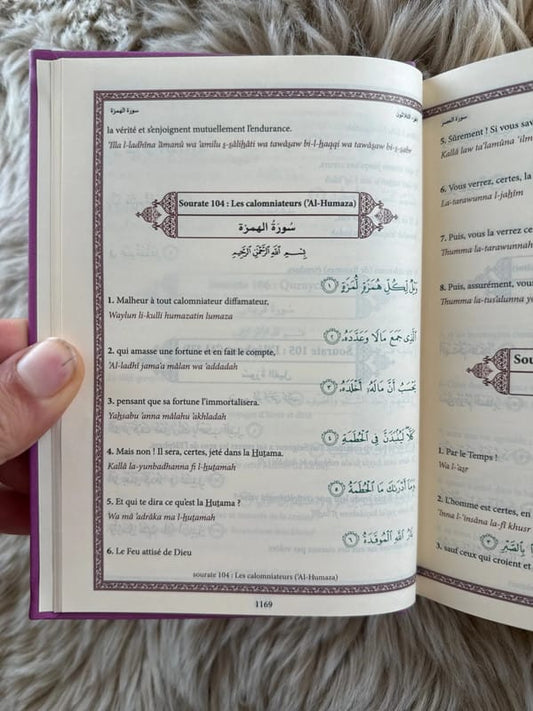 سورة الهمزة
الجزء الثلاثون
la vérité et s'enjoignent mutuellement l'endurance.
'Illa l-ladhîna 'âmanû wa 'amilu ṣ-ṣâliḥâti wa tawâṣaw bi-l-ḥaqqi wa tawâṣaw bi-ṣ-ṣabr
Sourate 104 : Les calomniateurs ('Al-Humaza)
سُورَةُ الهمزة
بِسْمِ اللَّهِ الرَّحْمَٰنِ الرَّحِيمِ
وَيْلٌ لِّكُلِّ هُمَزَةٍ لُّمَزَةٍ ١
1. Malheur à tout calomniateur diffamateur,
Waylun li-kulli humazatin lumaza
الَّذِي جَمَعَ مَالًا وَعَدَّدَهُ ٢
2. qui amasse une fortune et en fait le compte,
'Al-ladhî jama'a mâlan wa 'addadah
يَحْسَبُ أَنَّ مَالَهُ أَخْلَدَهُ ٣
3. pensant que sa fortune l'immortalisera.
Yaḥsabu 'anna mâlahu 'akhladah
كَلَّا لَيُنبَذَنَّ فِي الْحُطَمَةِ ٤
4. Mais non ! Il sera, certes, jeté dans la Ḥuṭama.
Kallâ la-yunbadhanna fi l-ḥuṭamah
وَمَا أَدْرَاكَ مَا الْحُطَمَةُ ٥
5. Et qui te dira ce qu'est la Ḥuṭama ?
Wa mâ 'adrâka ma l-ḥuṭamah
نَارُ اللَّهِ الْمُوقَدَةُ ٦
6. Le Feu attisé de Dieu
sourate 104 : Les calomniateurs ('Al-Humaza)
1169
سورة العصر
5. Sûrement ! Si vous sav
Kallâ law ta'lamûna 'ilm
6. Vous verrez, certes, la
La-tarawunna l-jaḥîm
7. Puis, vous la verrez ce
Thumma la-tarawunnah
8. Puis, assurément, vous
Thumma la-tus'alunna y
Sou
1. Par le Temps !
Wa l-'aṣr
2. L'homme est certes, en
'Inna l-'insâna la-fî khusr
بِالصَّبْرِ ٣
3. sauf ceux qui croient et